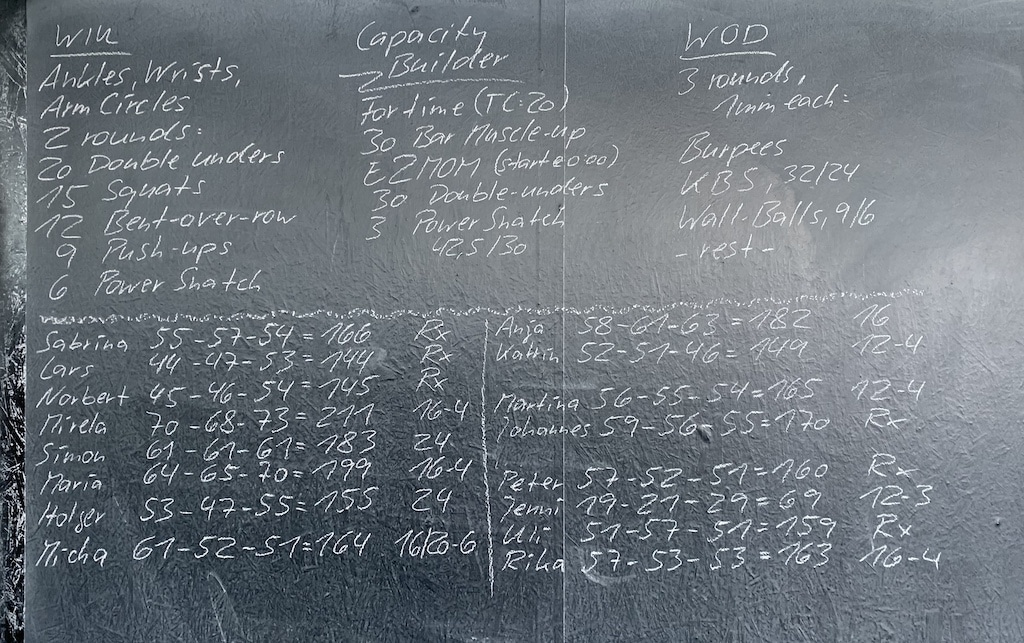 WU
Ankles, Wrists,
Arm Circles
2 rounds:
20 Double unders
15 Squats
12 Bent-over-row
9 Push-ups
6 Power Snatch
Capacity
Builder
For time (TC: 20)
30 Bar Muscle-up
E2MOM (start @ 0:00)
30 Double-unders
3 Power Snatch
42,5/30
WOD
3 rounds,
1min each:
Burpees
KBS, 32/24
Wall-Balls, 9/6
- rest -
Sabrina 55-57-54 = 166 Rx
Lars 44-47-53 = 144 Rx
Norbert 45-46-54 = 145 Rx
Mirela 70-68-73 = 211 16-4
Simon 61-61-61 = 183 24
Maria 64-65-70 = 199 16-4
Holger 53-47-55 = 155 24
Micha 61-52-51 = 164 16/20-6
Anja 58-61-63 = 182 16
Katrin 52-51-46 = 149 12-4
Martina 56-55-54 = 165 12-4
Johannes 59-56-55 = 170 Rx
Peter 57-52-51 = 160 Rx
Jenni 19-21-29 = 69 12-3
Uli 51-57-51 = 159 Rx
Rika 57-53-53 = 163 16-4